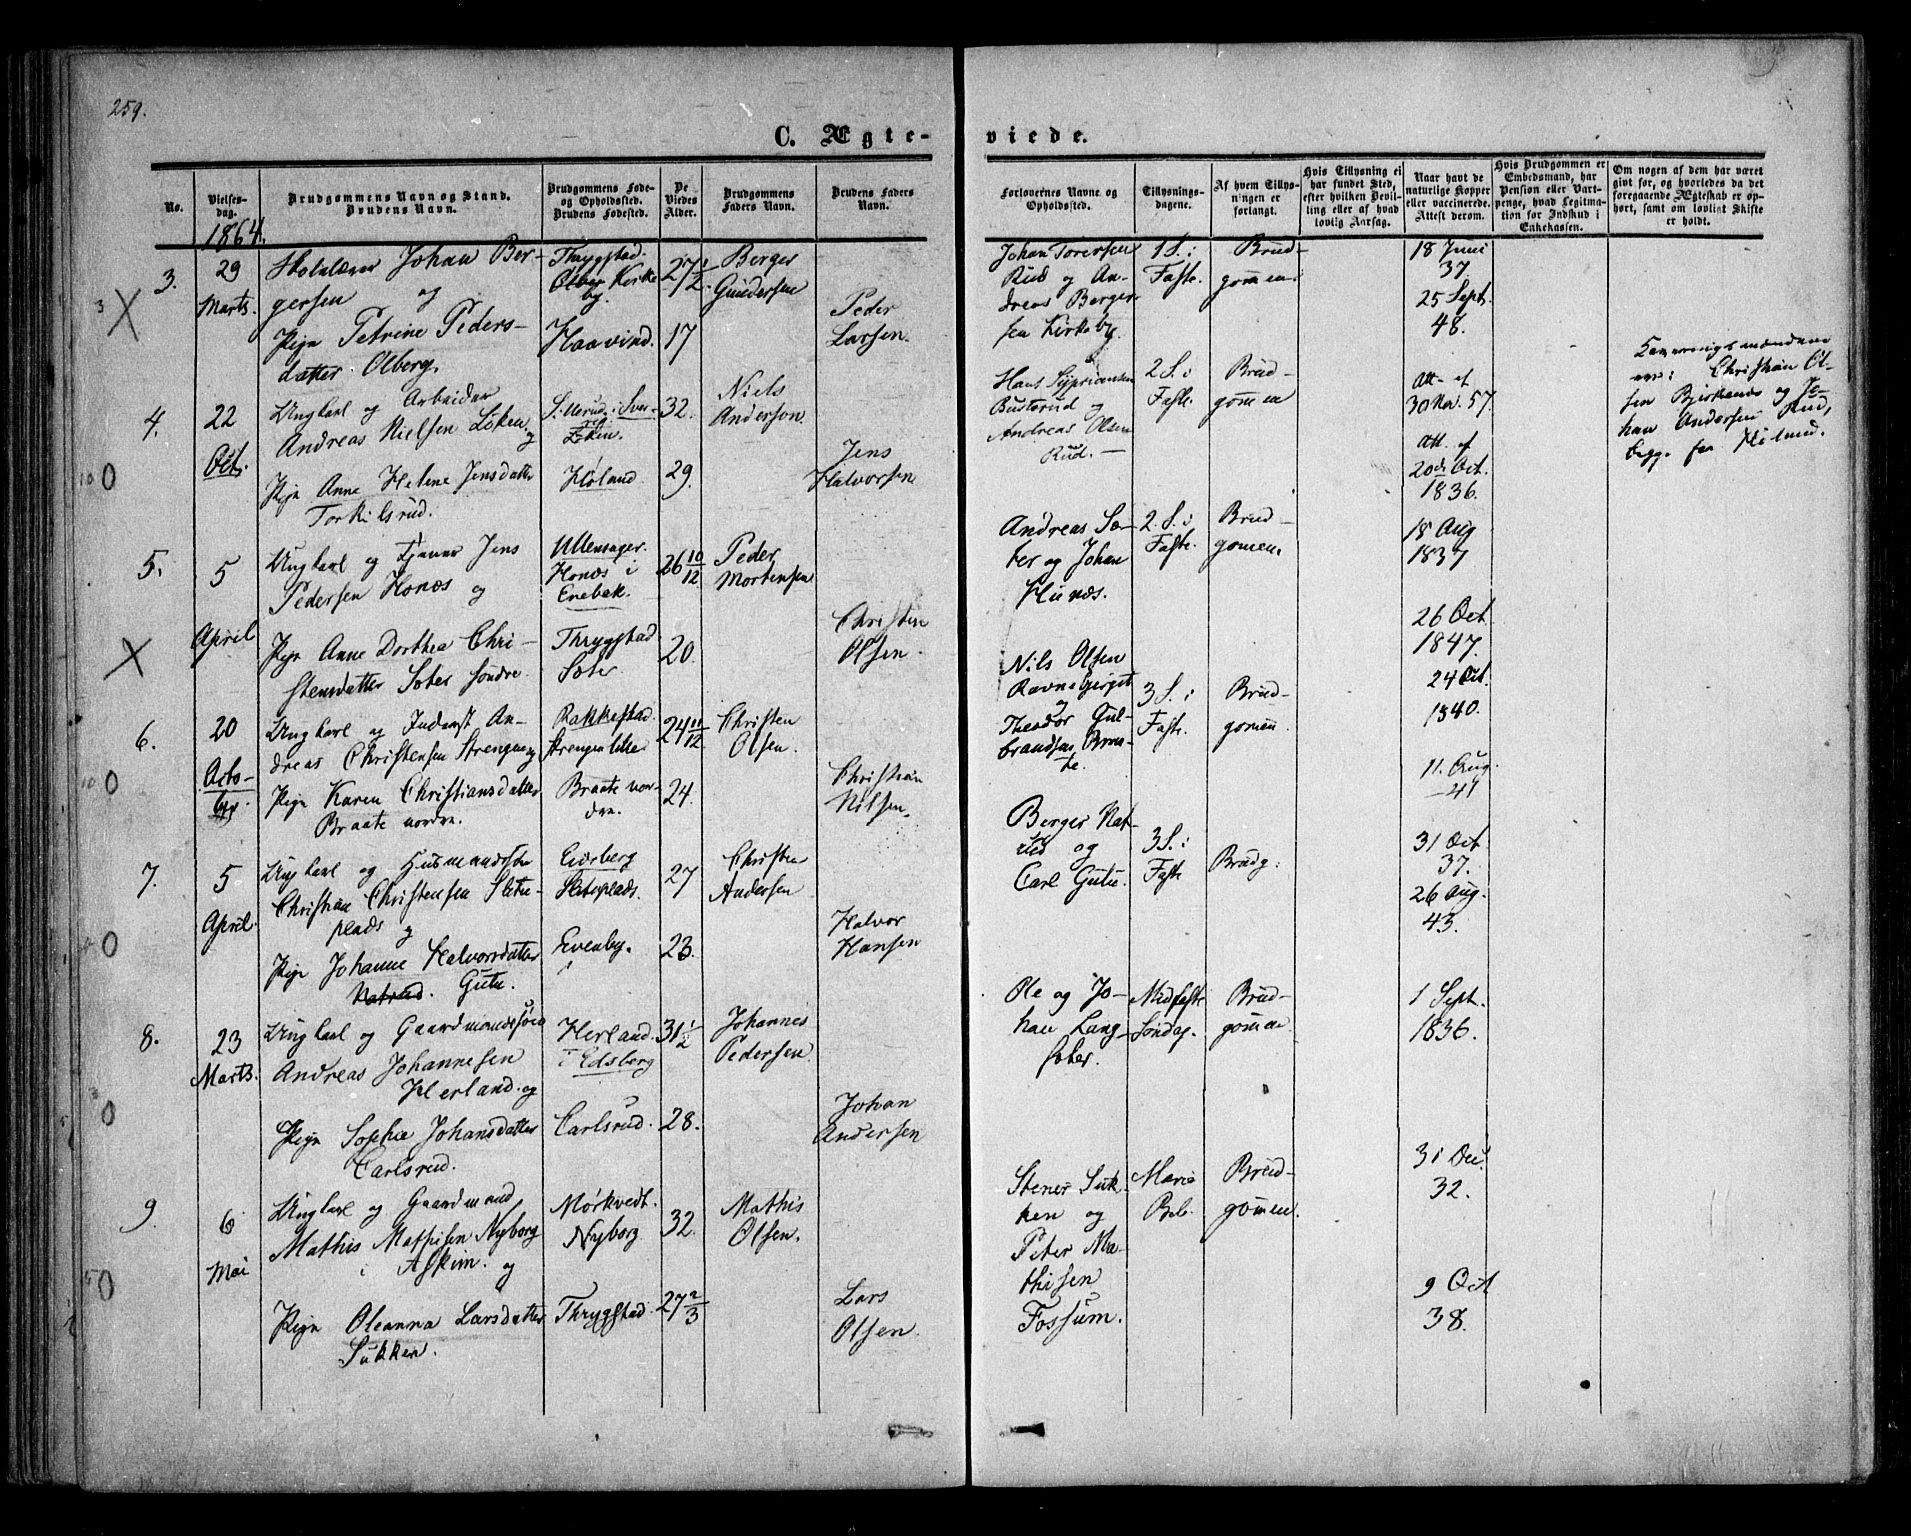 259.
C. Ægte-
viede.
No.
Vielses-
dag.
Brudgommens Navn og Stand.
Brudens Navn.
Brudgommens Føde-
og Opholdssted.
Brudens Fødested.
De
Viedes
Alder.
Brudgommens
Faders Navn.
Brudens Faders
Navn.
Forlovernes Navne og
Opholdssted.
Tillysnings-
dagene.
Af hvem Tillys-
ningen er
forlangt.
Hvis Tillysning ei
har fundet Sted,
efter hvilken Bevil-
ling eller af hvad
lovlig Aarsag.
Naar havt de
naturlige Kopper
eller vaccinerede.
Attest derom.
Hvis Brudgommen er
Embedsmand, har
Pension eller Vart-
penge, hvad Legitma-
tion for Indskud i
Enkekassen.
Om nogen af dem har været
gift før, og hvorledes da det
foregaaende Ægteskab er op-
hørt, samt om lovligt Skifte
er holdt.
1864.
3.
29
Marts.
Skolelærer Johan Ber-
gersen og
Pign Petrine Peders-
datter Olberg.
Thrygstad.
Kirke
by.
Haavind.
27 1/2.
17
Berger
Gundersen
Peder
Larsen.
Johan Torersen
Rud og An-
dreas Berger
sen Kirkeby.
1 S. i
Faste.
Brud-
gommen.
18 Juni
37.
25 Sept.
48.
4.
22
Oct.
Ungkarl og Arbeider
Andreas Nielsen Løken
og
Pign Anne Helene Jensdatter
Torkilsrud.
Høland.
32.
29.
Niels
Anderson.
Jens
Halvorsen
Hans
Busterud og
Andreas Olsen
Rud. —
2 S. i
Faste.
Brud-
gommen
Att. af
30 Nov. 57.
Att. af
20de Oct.
1836.
Christian Ol-
sen
og Jo-
han Andersen Rud,
begge fra
5.
5
April
Ungkarl og Tjener Jens
Pedersen Honæs og
Pign Anne Dorthea Chri-
stensdatter Soter søndre
Ullensager.
Honæs i
Enebak.
Thrygstad.
Soter
26 10/12
20.
Peder
Mortensen
Christen
Olsen.
Andreas So-
ter og Johan
Hunæs.
2. S. i
Faste.
Brud-
gommen.
18 Aug
1837
26 Oct.
1847.
6.
20
Octo-
ber.
Ungkarl og Inderst An-
dreas Christensen Strengen og
Pign Karen Christiansdatter
Braate nordre.
Rakkestad.
Strengen lille
Braate nor-
dre.
24 11/12
24.
Christen
Olsen.
Christian
Nilsen.
Nils Olsen
Ravnsbjerget
og
Theodor Gul-
brandsen Braa-
te.
3 S. i
Faste.
Brud-
gommen
24 Oct.
1840.
11. Aug.
—41
7.
5
April.
Ungkarl og Husmandssøn
Christian Christensen Sletu-
plads og
Pign Johanne Halvorsdatter
Natrud. Gutu.
Eidsberg
Sletuplads.
Evenby.
27
23.
Christen
Andersen
Halvor
Hansen
Berger Nat-
rud og
Carl Gutu.
3 S. i
Faste
Brudg:
31 Oct.
37.
26 Aug.
43.
8.
23
Marts.
Ungkarl og Gaardmandssøn
Andreas Johannesen
Herland. og
Pign Sophie Johansdatter
Carlsrud.
Herland.
i Edsberg
Carlsrud.
31 1/2
28.
Johannes
Pedersen
Johan
Andersen
Ole og Jo-
han Lang-
soter.
Midfaste
Søndag.
Brud-
gommen
1 Sept.
1836.
9.
6
Mai
Ungkarl og Gaardmand,
Mathis Mathisen Nyborg
i Askim. og
Pign Oleanna Larsdatter
Sukken.
Mørkvedt.
Nyborg
Thrygstad.
32.
27 2/3
Mathis
Olsen.
Lars
Olsen.
Stener Suk-
ken og
Peter Ma-
thisen
Fossum.
Marie
Beb.
Brud-
gommen.
31 Dec.
32.
9 Oct
38.